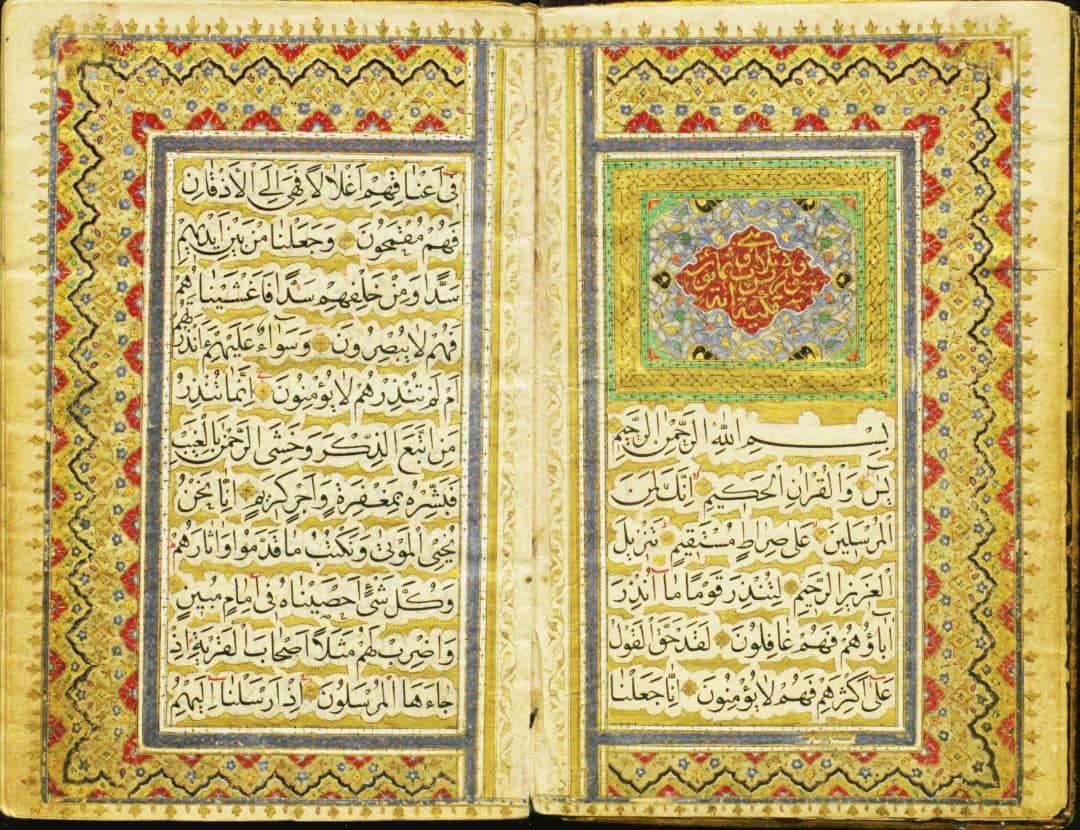 بِسْمِ اللهِ الرَّحْمٰنِ الرَّحِيمِ
يٰسٓ وَالْقُرْاٰنِ الْحَكِيمِ اِنَّكَ لَمِنَ
الْمُرْسَلِينَ عَلٰى صِرَاطٍ مُسْتَقِيمٍ تَنْزِيلَ
الْعَزِيزِ الرَّحِيمِ لِتُنْذِرَ قَوْمًا مَا اُنْذِرَ
اٰبَاؤُهُمْ فَهُمْ غَافِلُونَ لَقَدْ حَقَّ الْقَوْلُ
عَلٰٓى اَكْثَرِهِمْ فَهُمْ لَا يُؤْمِنُونَ اِنَّا جَعَلْنَا
فِىٓ اَعْنَاقِهِمْ اَغْلَالًا فَهِىَ اِلَى الْاَذْقَانِ
فَهُمْ مُقْمَحُونَ وَجَعَلْنَا مِنْ بَيْنِ اَيْدِيهِمْ
سَدًّا وَمِنْ خَلْفِهِمْ سَدًّا فَاَغْشَيْنَاهُمْ
فَهُمْ لَا يُبْصِرُونَ وَسَوَآءٌ عَلَيْهِمْ ءَاَنْذَرْتَهُمْ
اَمْ لَمْ تُنْذِرْهُمْ لَا يُؤْمِنُونَ اِنَّمَا تُنْذِرُ
مَنِ اتَّبَعَ الذِّكْرَ وَخَشِىَ الرَّحْمٰنَ بِالْغَيْبِ
فَبَشِّرْهُ بِمَغْفِرَةٍ وَاَجْرٍ كَرِيمٍ اِنَّا نَحْنُ
نُحْيِى الْمَوْتٰى وَنَكْتُبُ مَا قَدَّمُوا وَاٰثَارَهُمْ
وَكُلَّ شَىْءٍ اَحْصَيْنَاهُ فِىٓ اِمَامٍ مُبِينٍ
وَاضْرِبْ لَهُمْ مَثَلًا اَصْحَابَ الْقَرْيَةِ اِذْ
جَاءَهَا الْمُرْسَلُونَ اِذْ اَرْسَلْنَآ اِلَيْهِمُ